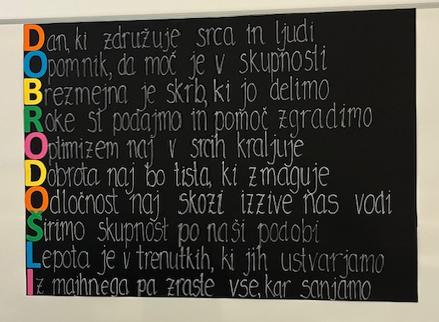 Dan, ki združuje srca in ljudi
Opomnik, da moč je v skupnosti
Brezmejna je skrb, ki jo delimo
Roke si podajmo in pomoč zgradimo
Optimizem naj v srcih kraljuje
Dobrota naj bo tista, ki zmaguje
Odločnost naj skozi izzive nas vodi
Širimo skupnost po naši podobi
Lepota je v trenutkih, ki jih ustvarjamo
Iz majhnega pa zraste vse, kar sanjamo